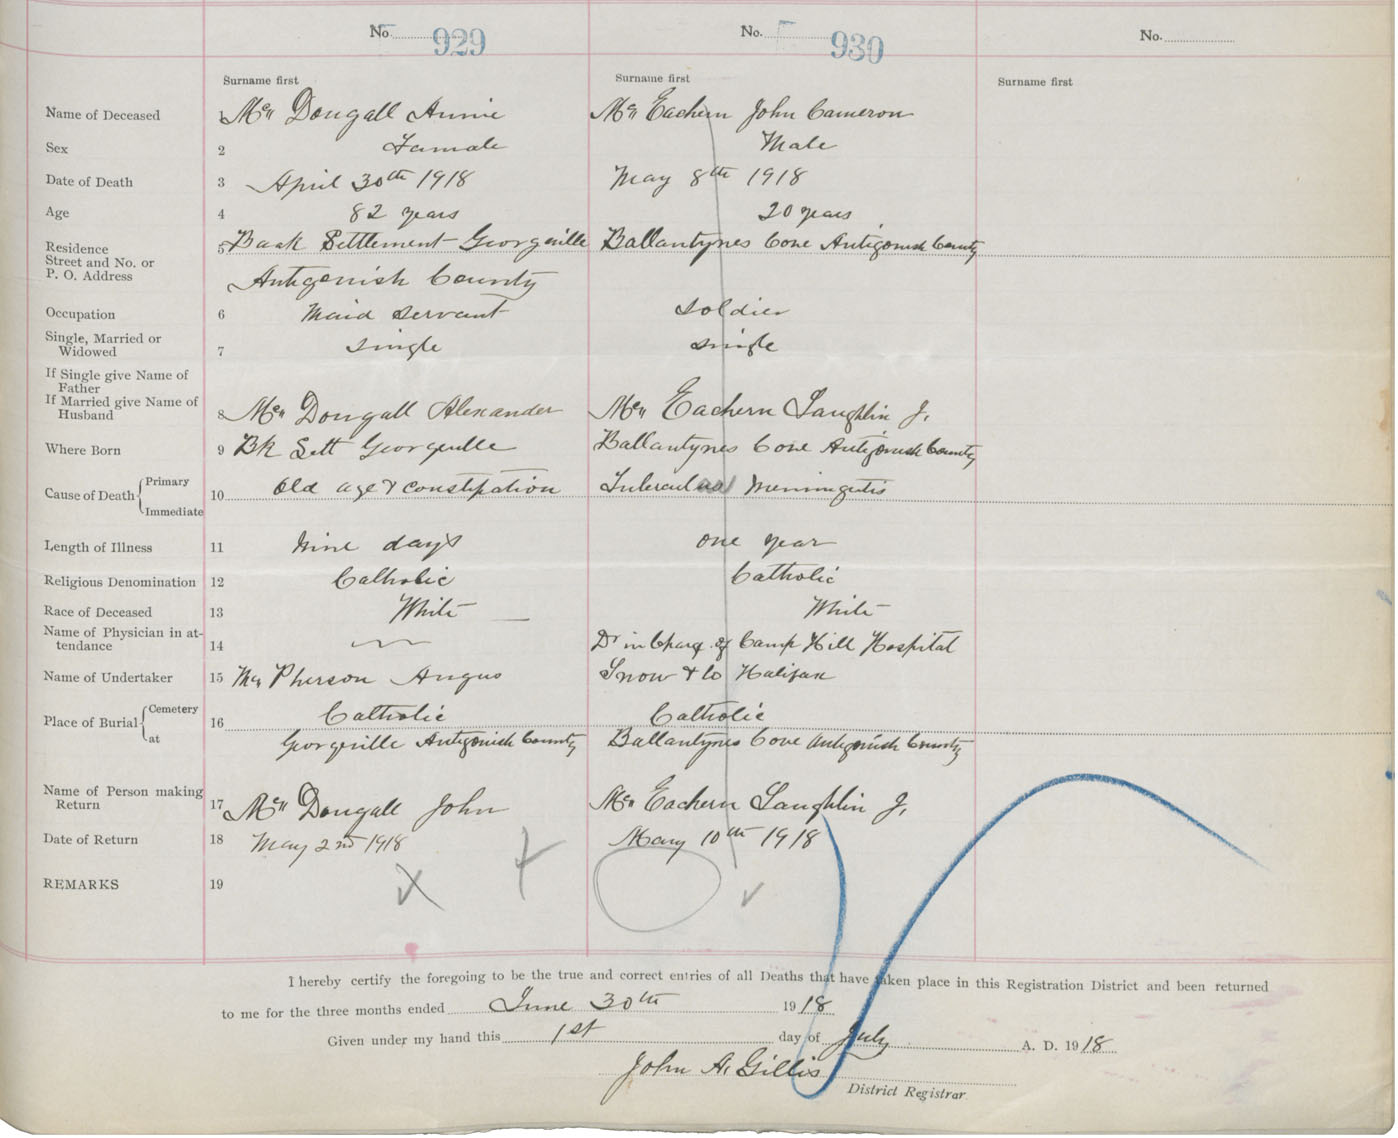 No. 929 No. 930 No.
Surname first Surname first Surname first
Name of Deceased 1 Mc Dougall Annie Mc Eachern John Cameron
Sex 2 Famale Male
Date of Death 3 April 30th 1918 May 8th 1918
Age 4 82 years 20 years
Residence 5 Back Settlement Georgeville Ballantynes Cove Antigonish County
Street and No. or
P. O. Address Antigonish County
Occupation 6 Maid servant soldier
Single, Married or
Widowed 7 single single
If Single give Name of
Father
If Married give Name of
Husband 8 Mc Dougall Alexander Mc Eachern Laughlin J.
Where Born 9 Bk Sett Georgeville Ballantynes Cove Antigonish County
Cause of Death { Primary 10 Old age & constipation Tubercular Meningitis
Immediate
Length of Illness 11 Nine days one year
Religious Denomination 12 Catholic Catholic
Race of Deceased 13 White White
Name of Physician in at-
tendance 14 Dr in Charg. of Camp Hill Hospital
Name of Undertaker 15 Mc Pherson Angus Snow & Co Halifax
Place of Burial { Cemetery 16 Catholic Catholic
at Georgeville Antigonish County Ballantynes Cove Antigonish County
Name of Person making
Return 17 Mc Dougall John Mc Eachern Laughlin J.
Date of Return 18 May 2nd 1918 May 10th 1918
REMARKS 19
I hereby certify the foregoing to be the true and correct entries of all Deaths that have taken place in this Registration District and been returned
to me for the three months ended June 30th 1918
Given under my hand this 1st day of July A. D. 1918
John A. Gillis
District Registrar